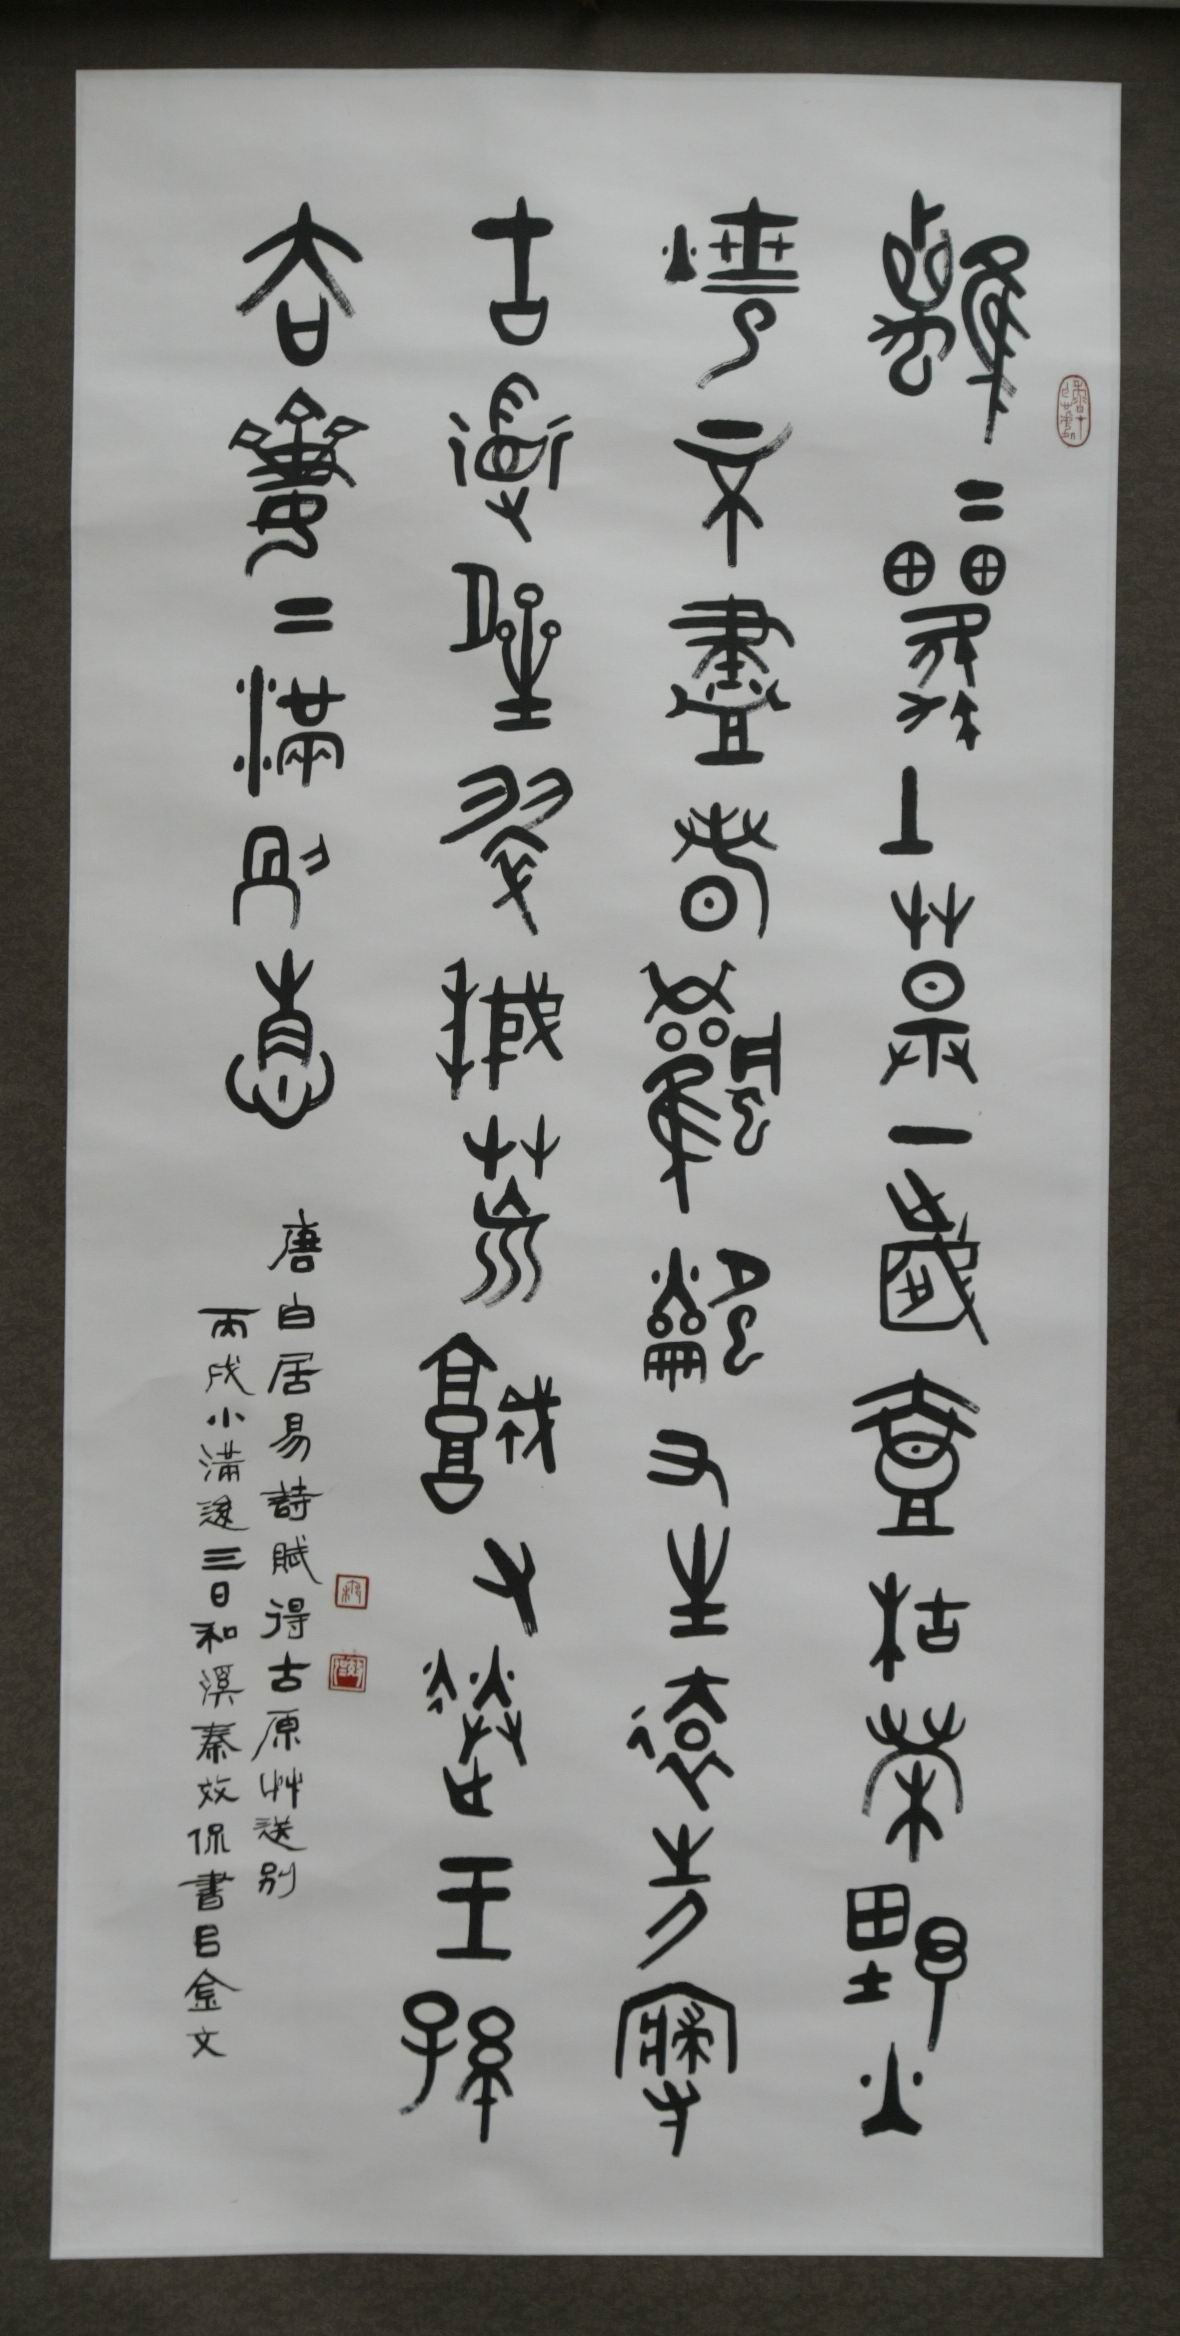 離〻原上草一歲壹枯榮野火
燒不盡春風吹又生遠芳侵
古道晴翠接荒城又送王孫
去萋〻滿別情
唐白居易詩賦得古原艸送別
丙戌小滿後三日和溪秦效侃書㠯金文